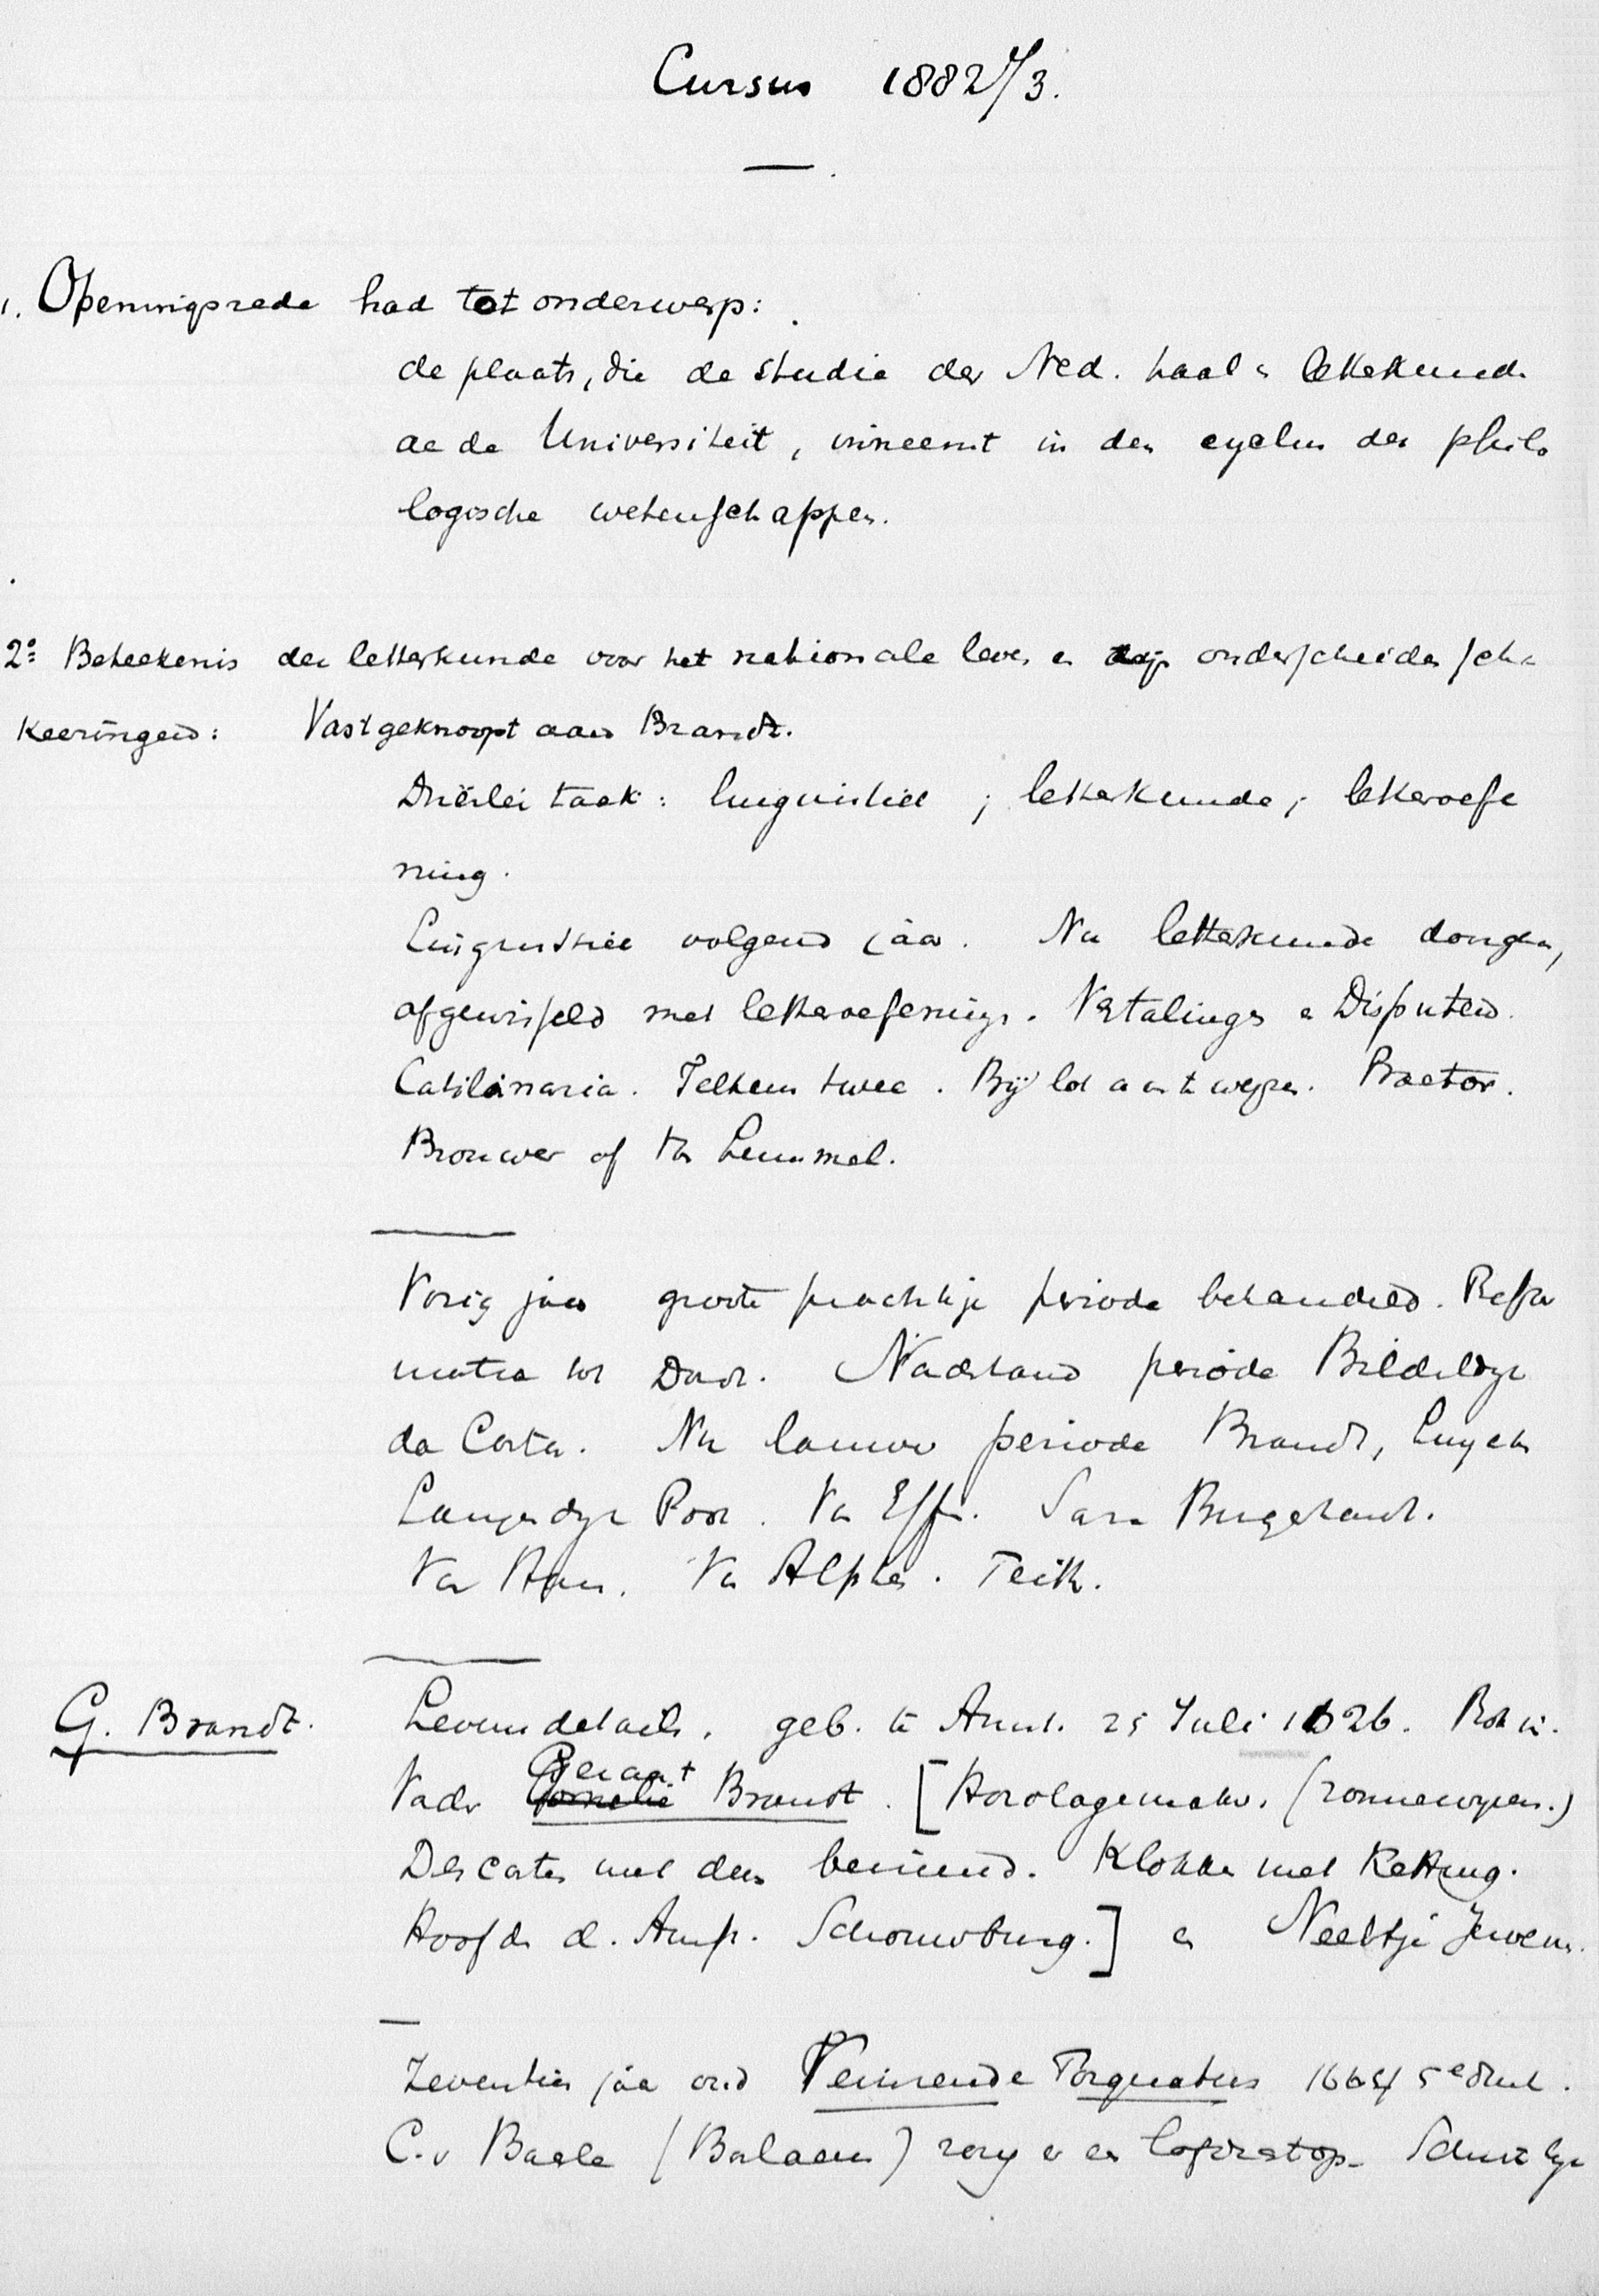 Cursus 1882/3.
1. Openingsrede had tot onderwerp:
de plaats, die de studie der Ned. taal & letterkunde
aa de Universiteit, inneemt in den cyclus der philo
logische wetenschappen.
2º Beteekenis der letterkunde voor het nationale leven en onderscheiden scha
keeringen: Vastgeknoopt aan Brandt.
Driërlei taak: linguistiek ; letterkunde ; letteroefe
ning.
Linguistiek volgend jaar. Nu letterkunde
afgewisseld met letteroefeningen. Vertalingen en Disputen.
Catilinaria. Telkens twee. Bij lot aan te wijzen. Praetor.
Brouwer of Lummel.
Vorig jaar groote prachtige periode behandeld. Refor
matie tot Nastaand periode Bilderdijk
da Costa. Nu lauwe periode Brandt, Luyken
Langendijk Poot. Van Effen. Sara Burgerhart.
Van Haren. Van Alphen. Feith.
G. Brandt. Levensdetails. geb. te Amst. 25 Juli 1626.
Vader Geraert Brandt. [Horologemaker. (zonnewijzers.)
Descartes met den bevriend. Klokken met Ketting.
Hoofd d. Amst. Schouwburg.] en Neeltje Jeroens.
Zeventien jaar oud Veinzende Torquatus 5e druk.
C. v Baerle (Barlaeus)